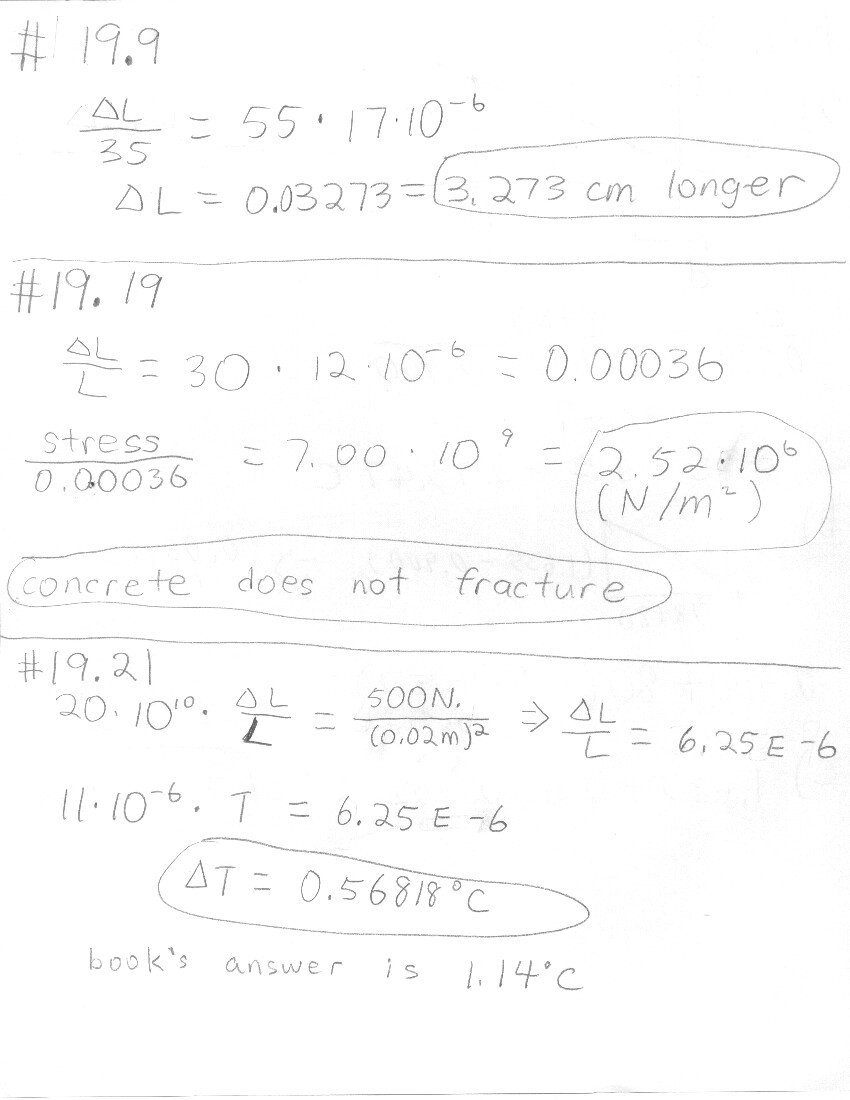 # 19.9
ΔL/35 = 55 · 17·10⁻⁶
ΔL = 0.03273 = 3.273 cm longer
#19.19
ΔL/L = 30 · 12·10⁻⁶ = 0.00036
stress/0.00036 = 7.00 · 10⁹ = 2.52·10⁶
(N/m²)
concrete does not fracture
#19.21
20·10¹⁰· ΔL/L = 500N./(0.02m)² ⇒ ΔL/L = 6.25E-6
11·10⁻⁶· T = 6.25E-6
ΔT = 0.56818°C
book's answer is 1.14°C